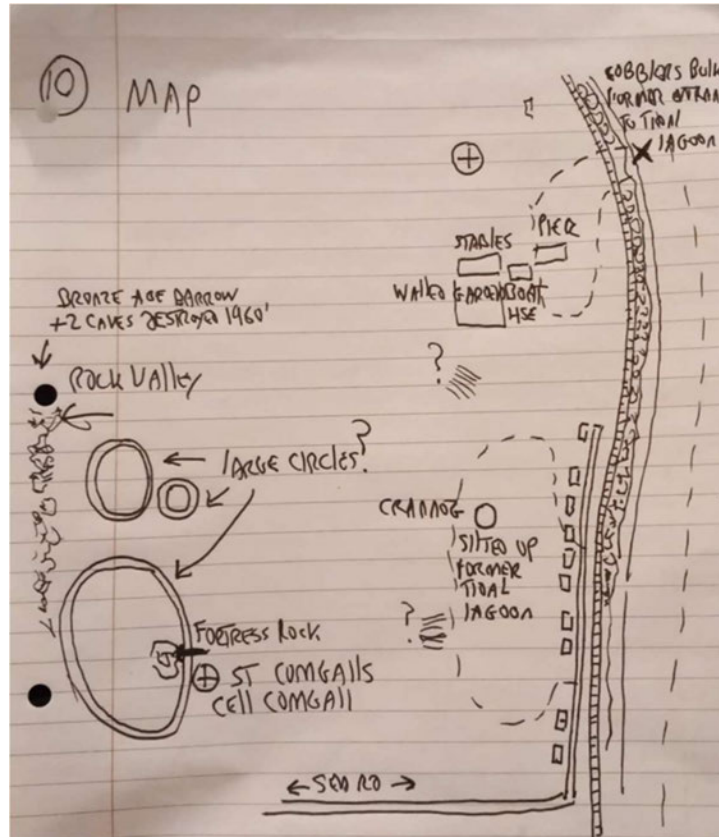 10 MAP
COBBLERS BULK
FORMER ENTRAN
TO TIDAL
LAGOON
PIER
STABLES
WALLED GARDEN
BOAT
HSE
BRONZE AGE BARROW
+2 CAVES DESTROYED 1960'
ROCK VALLEY
?
LARGE CIRCLES?
CRANNOG
SILTED UP
FORMER
TIDAL
LAGOON
?
FORTRESS ROCK
ST COMGALLS
CELL COMGALL
← SEA RD →